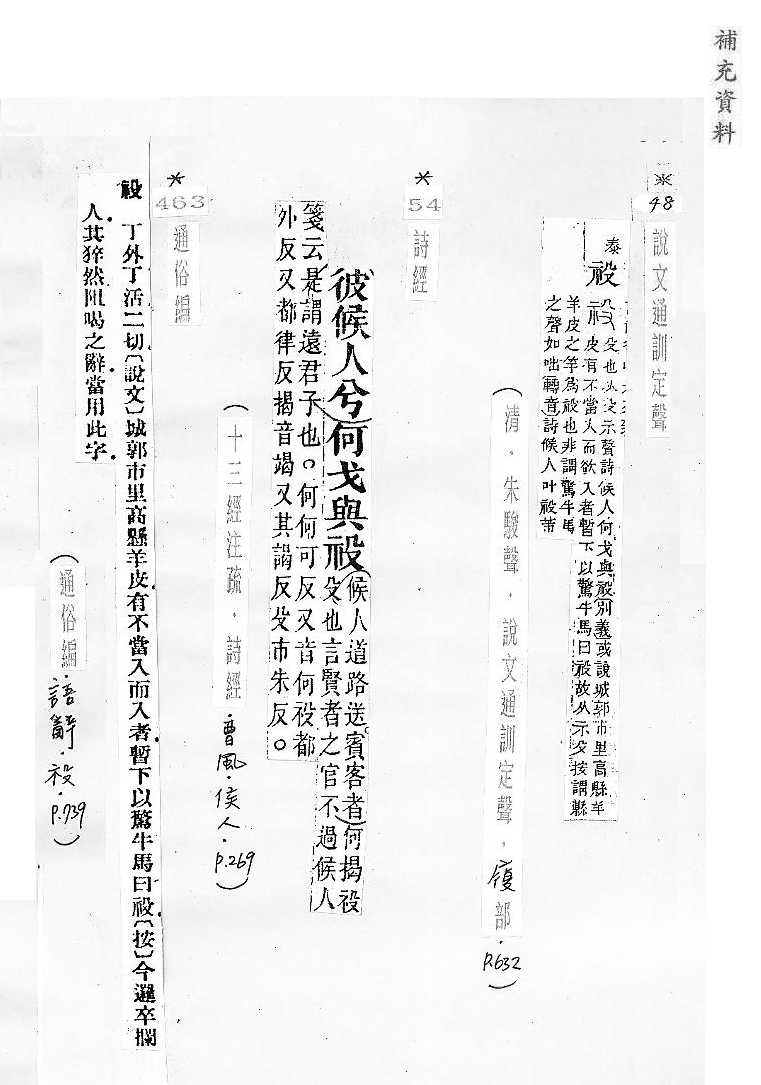 補充資料
48
說文通訓定聲
泰
祋
祋殳也从殳示聲詩候人何戈與祋別義或說城郭市里高縣羊
皮有不當入而欲入者暫下以驚牛馬曰祋故从示殳按謂縣
羊皮之竿為祋也非謂驚牛馬
之聲如咄轉音詩候人叶祋芾
(清．朱駿聲．說文通訓定聲．履部．P.632)
54
詩經
彼候人兮何戈與祋
候人道路送賓客者何揭祋
殳也言賢者之官不過候人
箋云是謂遠君子也。何何可反又音何祋都
外反又都律反揭音竭又其謁反殳市朱反。
(十三經注疏．詩經．曹風．侯人．P.269)
463
通俗編
祋 丁外丁活二切〔說文〕城郭市里高縣羊皮有不當入而入者暫下以驚牛馬曰祋〔按〕今邏卒攔
人其猝然阻喝之辭當用此字
(通俗編．語辭．祋．P.739)